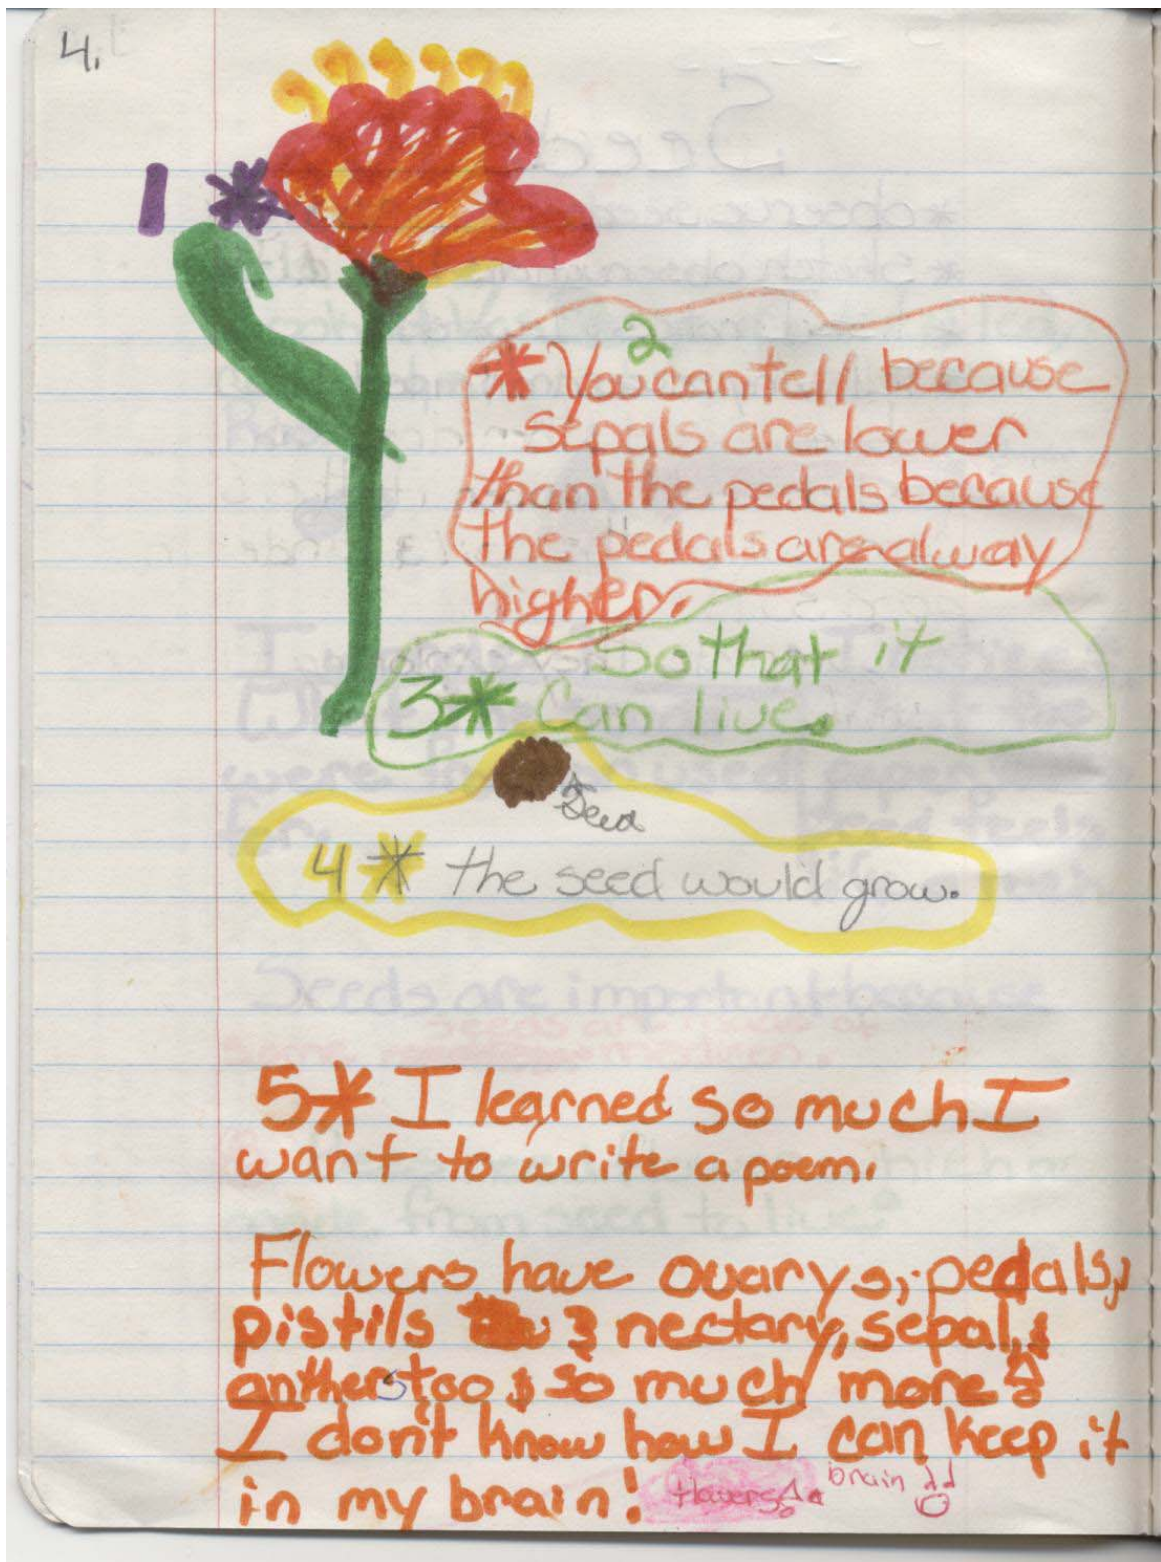 4.
1 *
2
* You can tell because
sepals are lower
than the pedals because
the pedals are alway
higher.
So that it
3* Can live.
Seed
4* the seed would grow.
5* I learned so much I
want to write a poem.
Flowers have ovarys, pedals,
pistils & nectary, sepals, &
anthers too & so much more
I don't know how I can keep it
in my brain!
flowers
brain